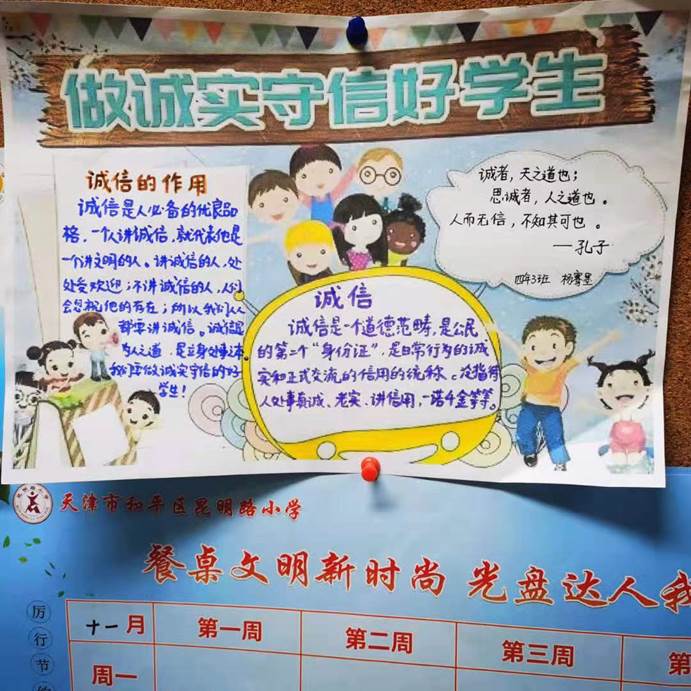 做诚实守信好学生
诚信的作用
诚信是人必备的优良品
格，一个人讲诚信，就代表他是
一个讲文明的人。讲诚信的人，处
处受欢迎；不讲诚信的人，人们
会忽视他的存在；所以我们人
都要讲诚信。诚信是
为人之道，是立身处事之本
我们要做诚实守信的好
学生！
诚者，天之道也；
思诚者，人之道也。
人而无信，不知其可也。
——孔子
四年3班 杨骞墨
诚信
诚信是一个道德范畴，是公民
的第二个“身份证”，是日常行为的诚
实和正式交流的信用的统称。泛指待
人处事真诚、老实、讲信用，一诺千金等等。
天津市和平区昆明路小学
餐桌文明新时尚 光盘达人我
厉行节
十一月 第一周 第二周 第三周 第
周一